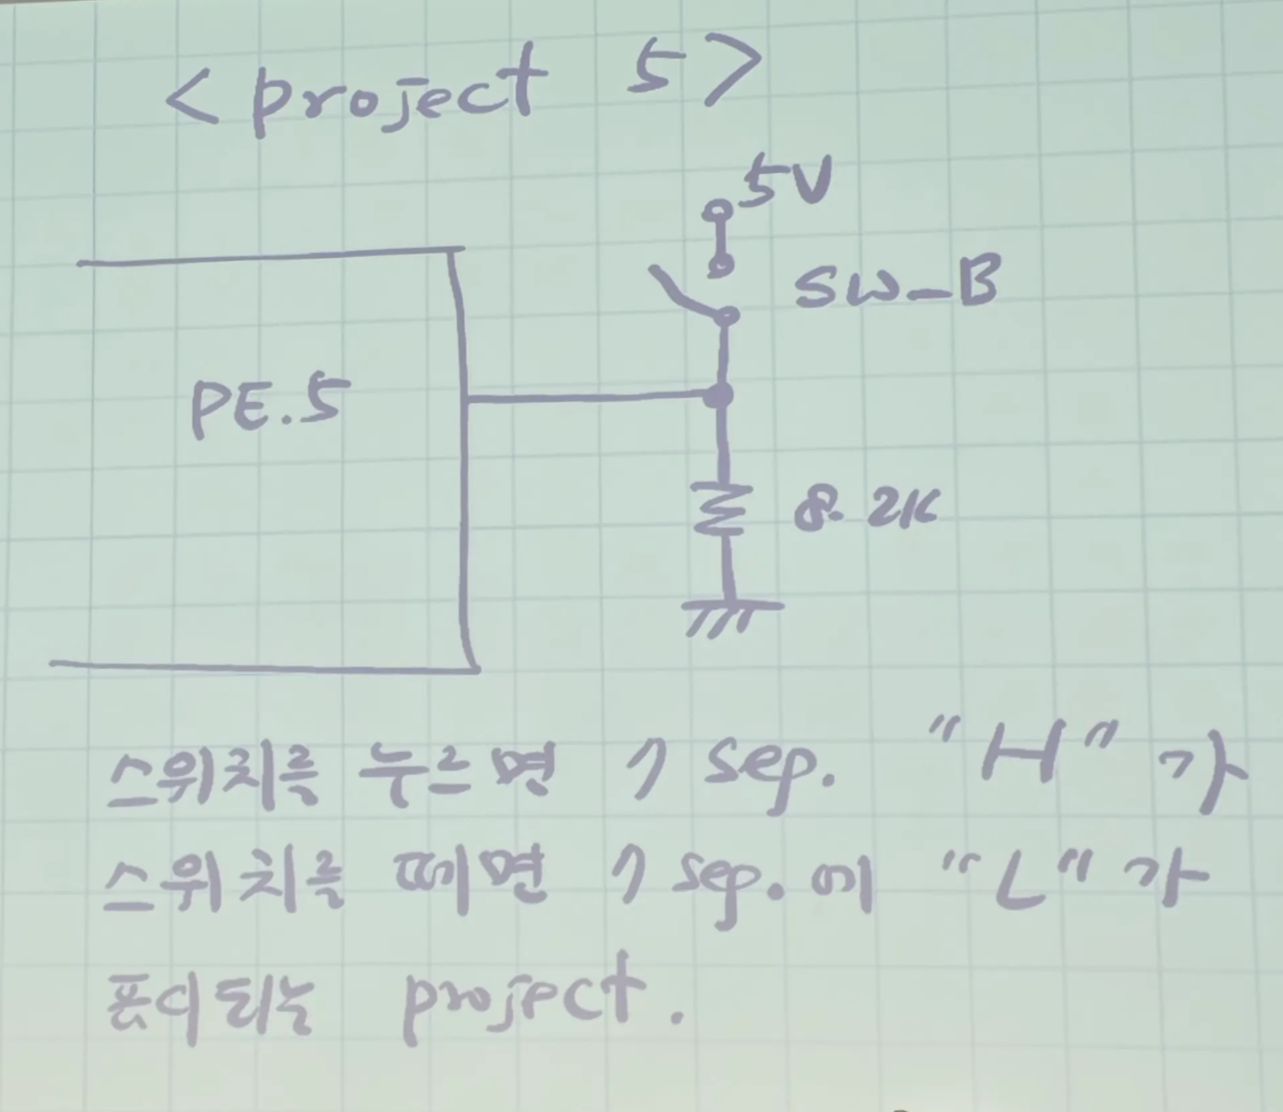 <project 5>
5V
SW_B
PE.5
8.2K
스위치를 누르면 7 sep. "H"가
스위치를 떼면 7 sep.에 "L"가
표시되는 project.